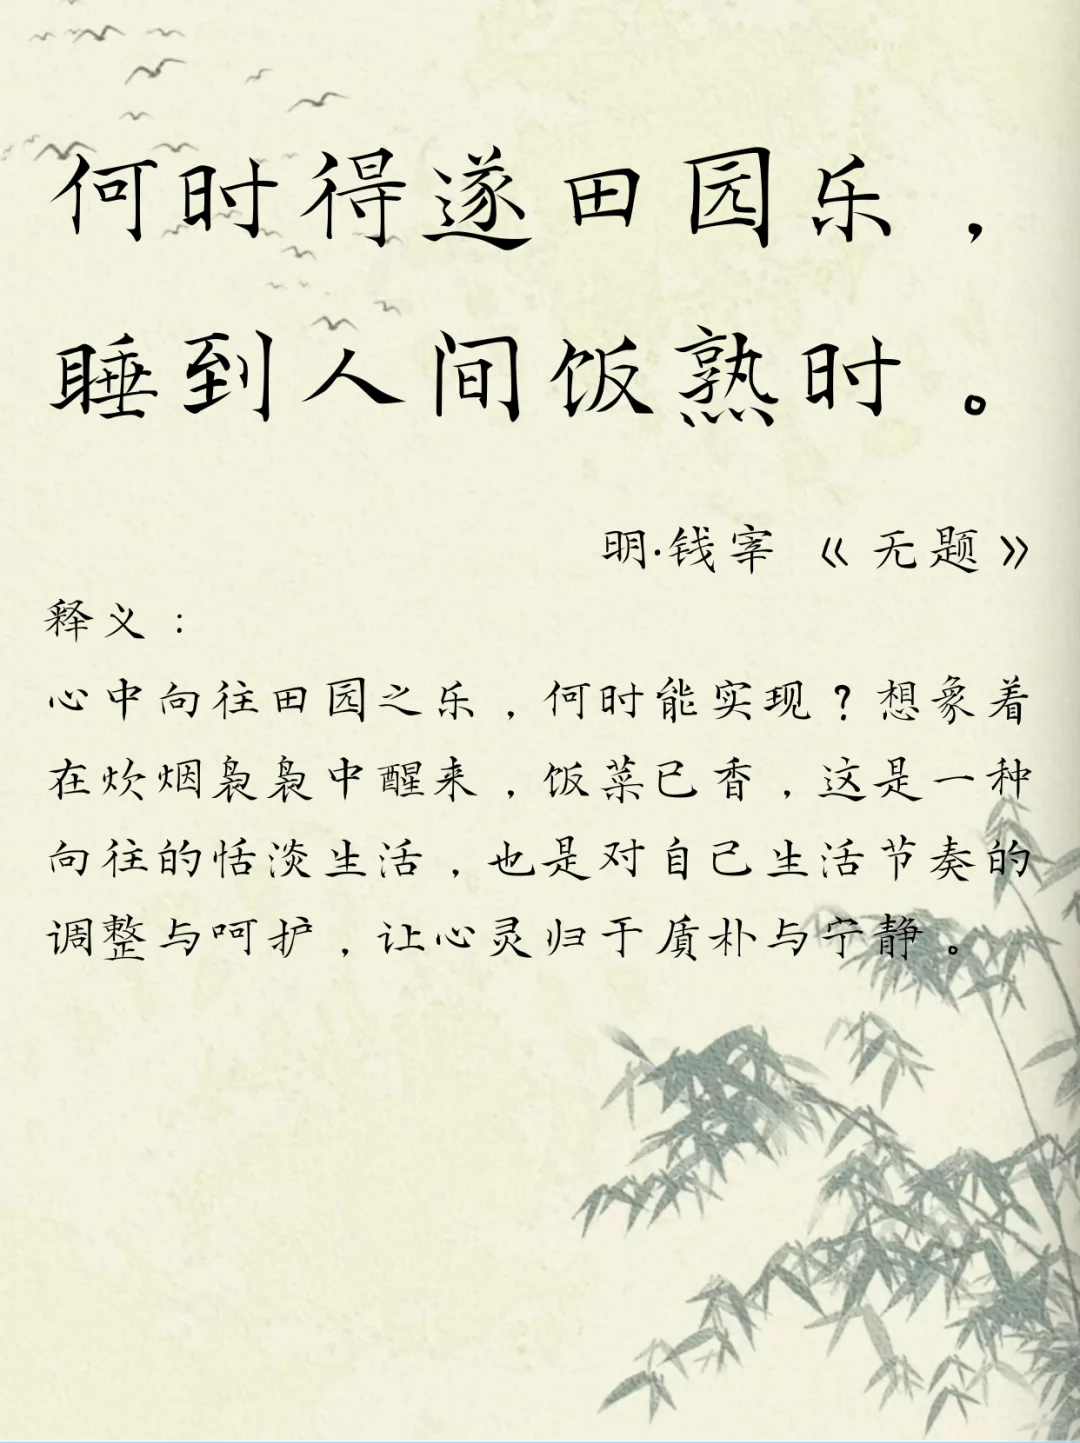 何时得遂田园乐，
睡到人间饭熟时。
明·钱宰 《无题》
释义：
心中向往田园之乐，何时能实现？想象着
在炊烟袅袅中醒来，饭菜已香，这是一种
向往的恬淡生活，也是对自己生活节奏的
调整与呵护，让心灵归于质朴与宁静。